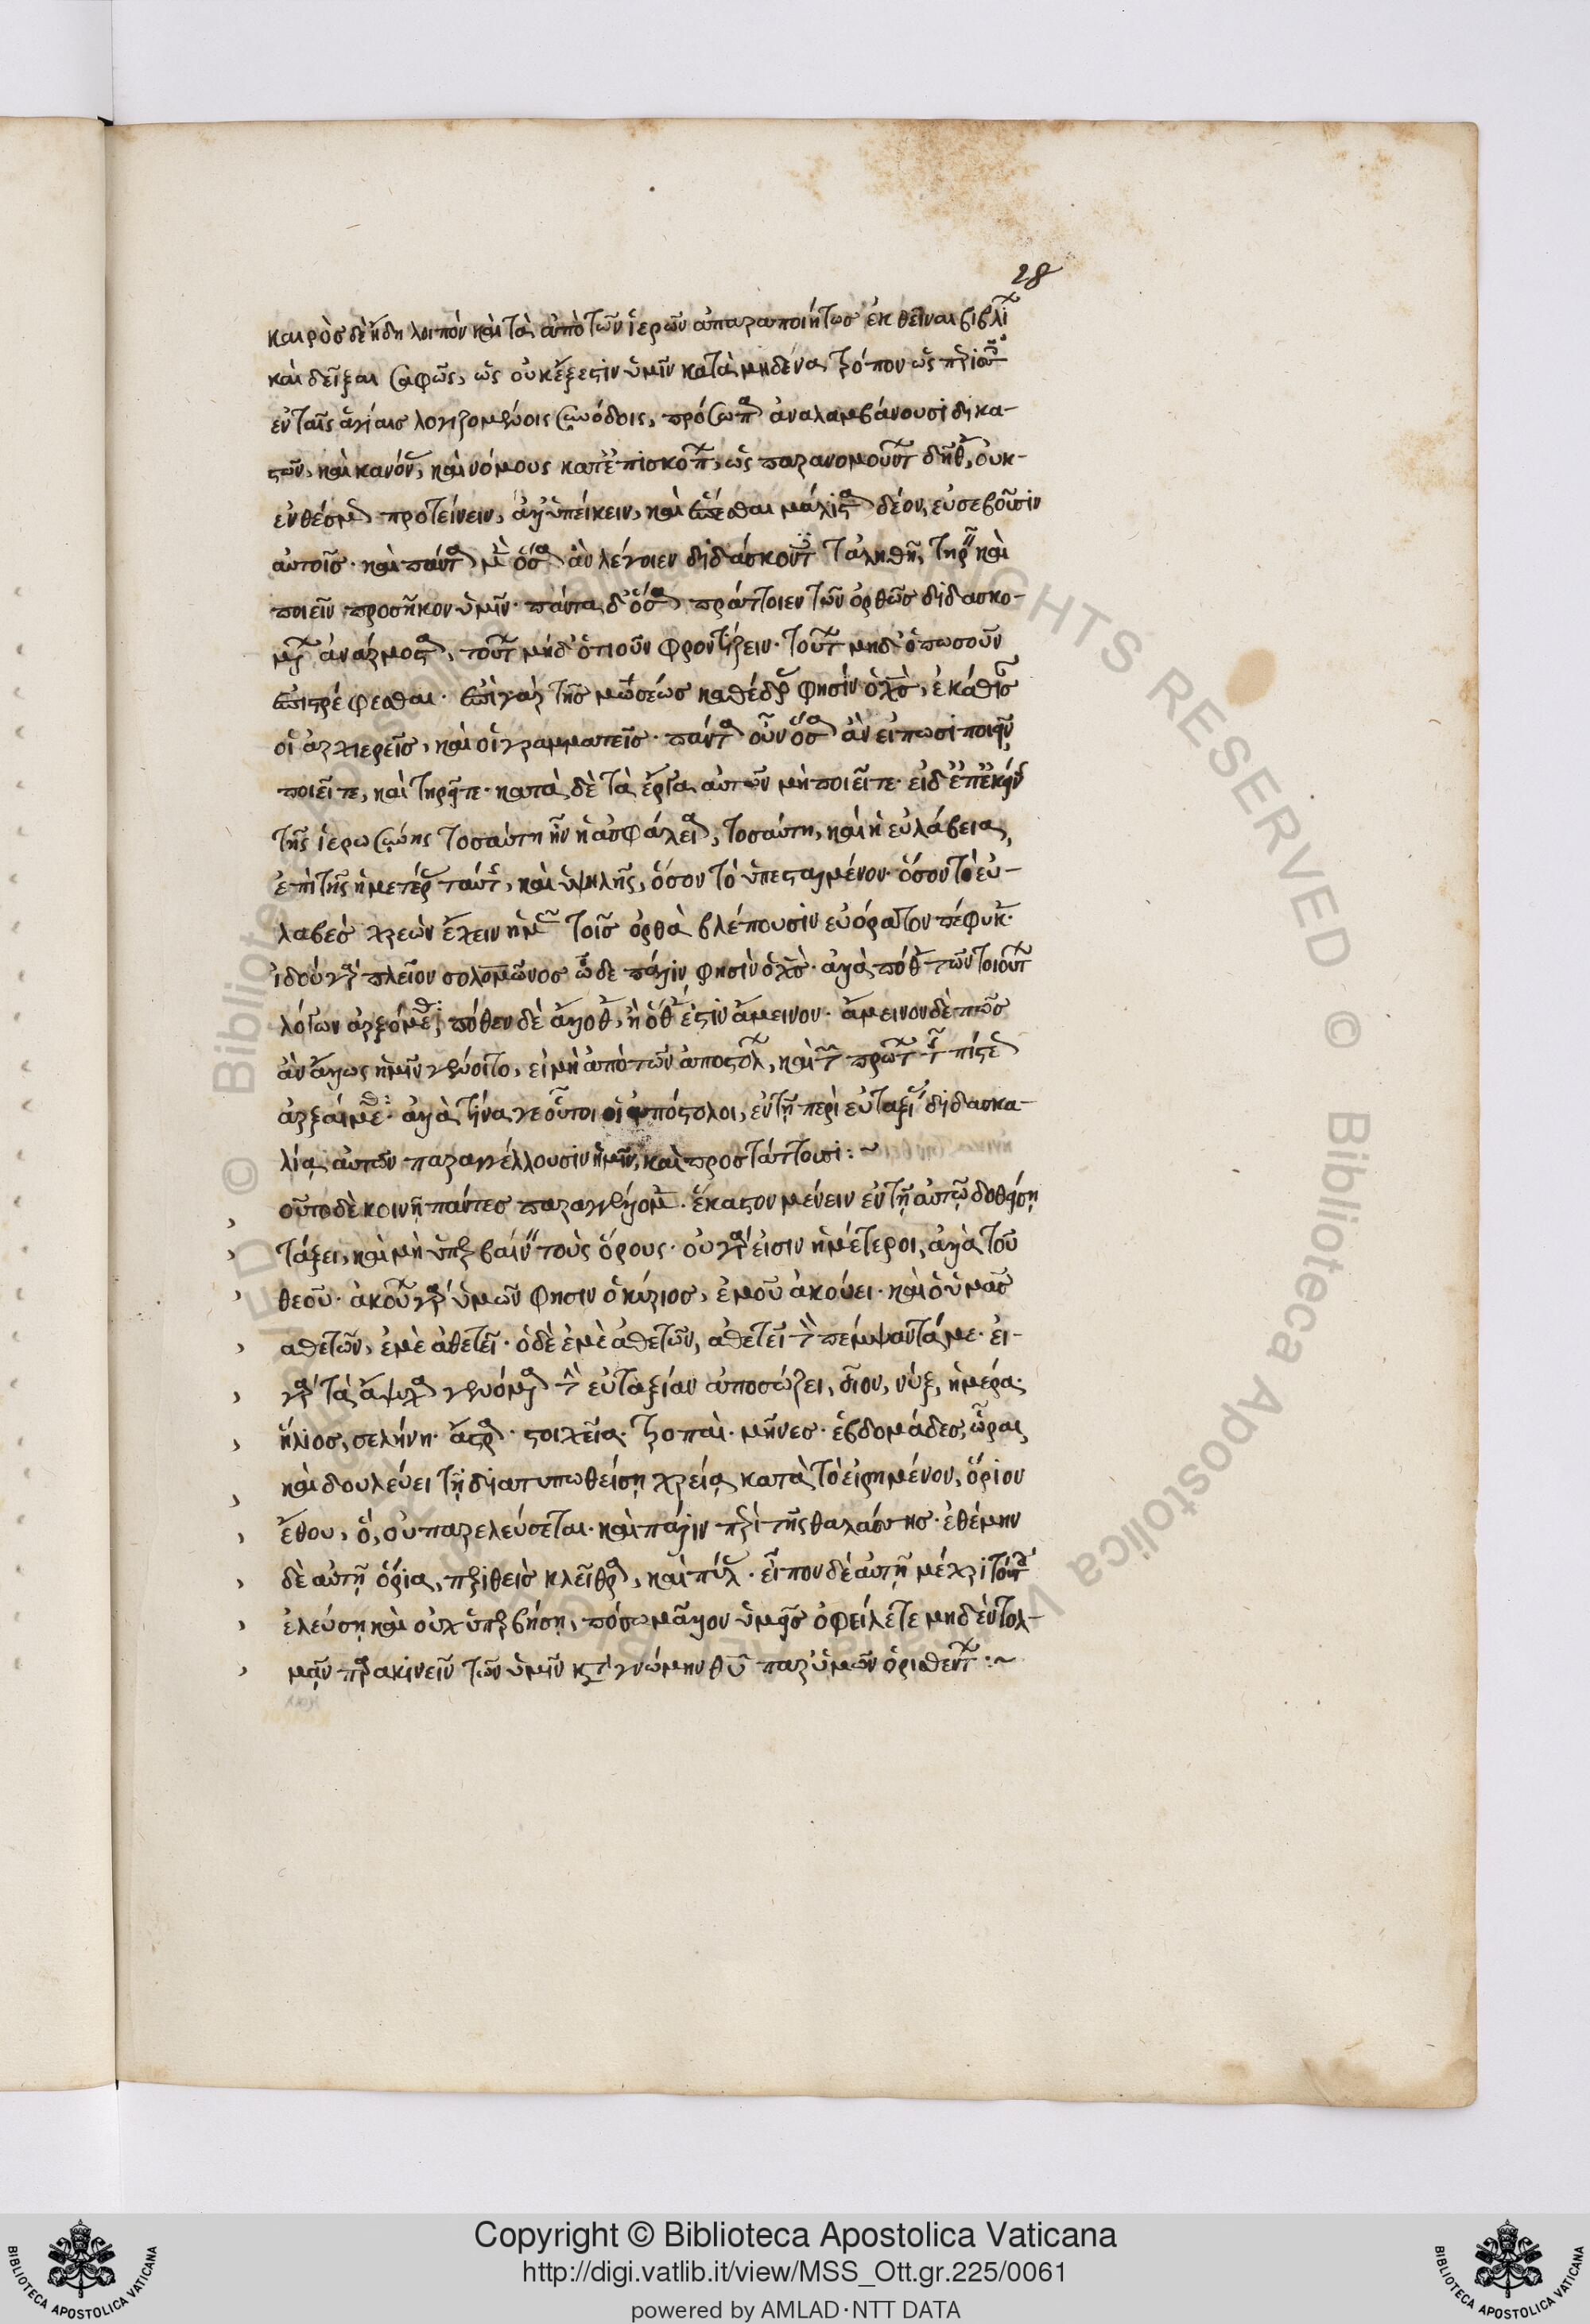 28
καιρὸς δὲ ἤδη λοιπὸν καὶ τὰ ἀπὸ τῶν ἱερῶν ἀπαραποιήτως ἐκθεῖναι βιβλί
καὶ δεῖξαι σαφῶς, ὡς οὐκ ἔξεστιν ὑμῖν κατὰ μηδένα τρόπον ὡς περὶ
ἐν ταῖς ἁγίαις λογιζομένοις συνόδοις, πρόσωπα ἀναλαμβάνουσι δικα-
στῶν, καὶ κανόν, καὶ νόμους κατ' ἐπισκόπ, ὡς παρανομοῦντ δῆθ, οὐκ-
προτείνειν, ἀλλ' ὑπείκειν, καὶ ἕπεσθαι μάλιστα δέον, εὐσεβοῦσιν
αὐτοῖς· καὶ πάντα μὲν ὅσα ἂν λέγοιεν διδάσκοντ τἀληθῆ, τηρεῖν καὶ
ποιεῖν προσῆκον ὑμῖν· πάντα δ' ὅσα πράττοιεν τῶν ὀρθῶς διδασκο-
μέν ἀνάρμοστα, τούτ μηδ' ὁτιοῦν φροντίζειν· τούτ μηδ' ὁπωσοῦν
ἐπιστρέφεσθαι· ἐπὶ γὰρ τῆς μωσέως καθέδρ φησὶν ὁ χς, ἐκάθισ
οἱ ἀρχιερεῖς, καὶ οἱ γραμματεῖς· πάντα οὖν ὅσα ἂν εἴπωσι ποιεῖν
ποιεῖτε, καὶ τηρεῖτε· κατὰ δὲ τὰ ἔργα αὐτῶν μὴ ποιεῖτε· εἰ δ' ἐπ' ἐκείν
τῆς ἱερωσύνης τοσαύτη ἦν ἡ ἀσφάλεια, τοσαύτη, καὶ ἡ εὐλάβεια,
ἐπὶ τῆς ἡμετέρ ταύτ, καὶ ὑψηλῆς, ὅσον τὸ ὑπεσταλμένον· ὅσον τὸ εὐ-
λαβὲς χρεὼν ἔχειν ἡμ τοῖς ὀρθὰ βλέπουσιν εὐόρατον πέφυκ·
ἰδοὺ γὰρ πλεῖον σολομῶνος ὧδε πάλιν φησὶν ὁ χς· ἀλλὰ πόθ τῶν τοιούτ
λόγων ἀρξόμεθα; πόθεν δὲ ἄλλοθ, ἢ ὅθ ἐστὶν ἄμεινον· ἄμεινον δὲ πῶς
ἂν ἄλλως ἡμῖν γένοιτο, εἰ μὴ ἀπὸ τῶν ἀποστόλ, καὶ τῶν πρώτ τῆς πίστε
ἀρξαίμεθα· ἀλλὰ τίνα γε οὗτοι οἱ ἀπόστολοι, ἐν τῇ περὶ εὐταξί διδασκα-
λίᾳ αὐτῶν παραγγέλλουσιν ἡμῖν, καὶ προστάττουσι :~
οὕτω δὲ κοινῇ πάντες παραγγέλλομ· ἕκαστον μένειν ἐν τῇ αὐτῷ δοθείσῃ
τάξει, καὶ μὴ ὑπερβαίνειν τοὺς ὅρους· οὐ γάρ εἰσιν ἡμέτεροι, ἀλλὰ τοῦ
θεοῦ· ἀκούων γὰρ ὑμῶν φησιν ὁ κύριος, ἐμοῦ ἀκούει· καὶ ὁ ὑμᾶς
ἀθετῶν, ἐμὲ ἀθετεῖ· ὁ δὲ ἐμὲ ἀθετῶν, ἀθετεῖ τὸν πέμψαντά με· εἰ-
γὰρ τὰ ἄψυχα τὴν εὐταξίαν ἀποσώζει, οἷον, νύξ, ἡμέρα·
ἥλιος, σελήνη· ἄστρα· στοιχεῖα· τροπαί· μῆνες· ἑβδομάδες, ὧραι,
καὶ δουλεύει τῇ διατυπωθείσῃ χρείᾳ κατὰ τὸ εἰρημένον, ὅριον
ἔθου, ὃ, οὐ παρελεύσεται· καὶ πάλιν περὶ τῆς θαλάσσης· ἐθέμην
δὲ αὐτῇ ὅρια, περιθεὶς κλεῖθρα, καὶ πύλ· εἶπον δὲ αὐτῇ μέχρι τούτ
ἐλεύσῃ καὶ οὐχ ὑπερβήσῃ, πόσῳ μᾶλλον ὑμεῖς ὀφείλετε μηδὲν τολ-
μᾶν παρακινεῖν τῶν ὑμῖν κατὰ γνώμην θυ παρ' ὑμῶν ὁρισθέντ :~
Copyright © Biblioteca Apostolica Vaticana
http://digi.vatlib.it/view/MSS_Ott.gr.225/0061
powered by AMLAD·NTT DATA